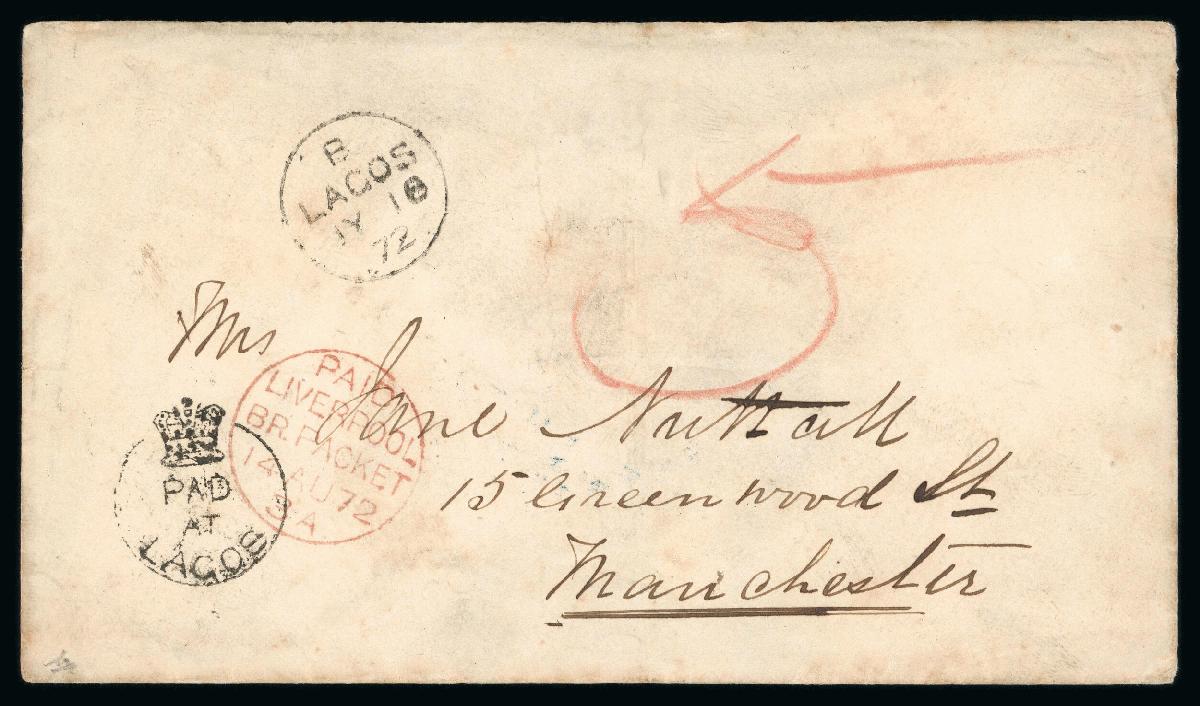 B
LAGOS
JY 18
72
5
Mrs Jane Nuttall
15 Greenwood St
Manchester
PAID
LIVERPOOL
BR. PACKET
14 AU 72
3 A
PAID
AT
LAGOS